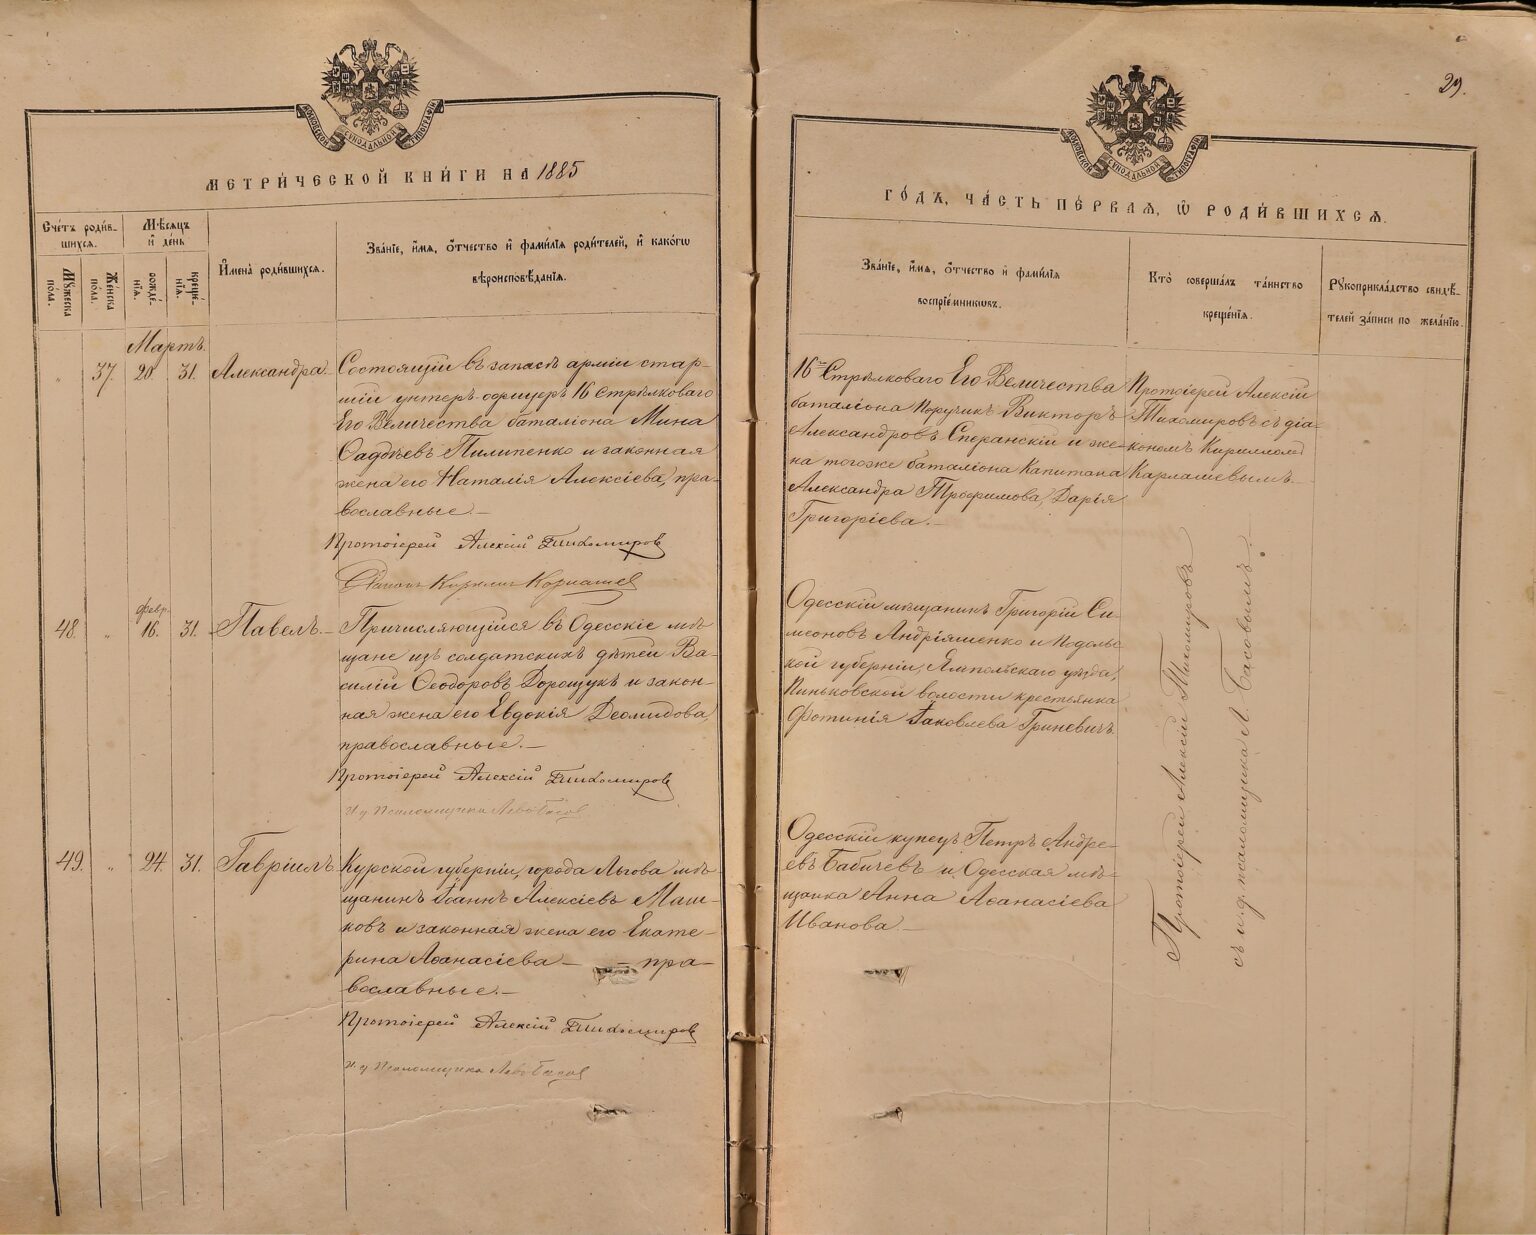 29.
МОСКОВСКОЙ СѴНОДАЛЬНОЙ ТИПОГРАФІИ
МЕТРИ́ЧЕСКОЙ КНИ́ГИ НА 1885
Сче́тъ роди́в-
шихсѧ.
Мꙋ́жеска по́ла.
Же́нска по́ла.
Мѣ́сѧцъ
и҆ де́нь
рожде́-
нїѧ.
креще́-
нїѧ.
И҆мена̀ роди́вшихсѧ.
Зва́нїе, и҆́мѧ, ѻ҆́тчество и҆ фами́лїѧ роди́телей, и҆ како́гѡ
вѣроисповѣ́данїѧ.
Мартъ.
" 37. 20. 31. Александра.
Состоящій въ запасѣ арміи стар-
шій унтеръ-офицеръ 16 Стрѣлковаго
Его Величества баталіона Мина
Ѳаддѣевъ Пилипенко и законная
жена его Наталія Алексіева, пра-
вославные.—
Протоіерей Алексій Тихомировъ
Діаконъ Кириллъ
февр.
48. " 16. 31. Павелъ.—
Причисляющійся въ Одесскіе мѣ-
щане изъ солдатскихъ дѣтей Ва-
силій Ѳеодоровъ Дорощукъ и закон-
ная жена его Евдокія Деомидова,
православные.—
Протоіерей Алексій Тихомировъ
и д Псаломщика Левъ Басов
49. " 24. 31. Гавріилъ.
Курской губерніи, города Льгова мѣ-
щанинъ Іоаннъ Алексіевъ Маш-
ковъ и законная жена его Екате-
рина Аѳанасіева — — пра-
вославные.—
Протоіерей Алексій Тихомировъ
и д Псаломщика Левъ Басов
МОСКОВСКОЙ СѴНОДАЛЬНОЙ ТИПОГРАФІИ
ГО́ДЪ, ЧА́СТЬ ПЕ́РВАѦ, Ѡ҆ РОДИ́ВШИХСѦ.
Зва́нїе, и҆́мѧ, ѻ҆́тчество и҆ фами́лїѧ
воспрїе́мникѡвъ.
Кто̀ соверша́лъ та́инство
креще́нїѧ.
Рꙋкоприкла́дство свидѣ́-
телей за́писи по жела́нїю.
16го Стрѣлковаго Его Величества
баталіона Поручикъ Викторъ
Александровъ Сперанскій и же-
на тогоже баталіона Капитана
Александра Трофимова, Дарья
Григоріева.—
Протоіерей Алексій
Тихомировъ съ діа-
кономъ Кирилломъ
Карлашевымъ.
Одесскій мѣщанинъ Григорій Си-
меоновъ Андріяшенко и Подоль-
ской губерніи, Ямпольскаго уѣзда,
Пиньковской волости крестьянка
Фотинія Іаковлева Гриневичъ.
Одесскій купецъ Петръ Андре-
евъ Бабичевъ и Одесская мѣ-
щанка Анна Аѳанасіева
Иванова.—
Протоіерей Алексій Тихомировъ
съ и. д. псаломщика Л. Басовымъ.